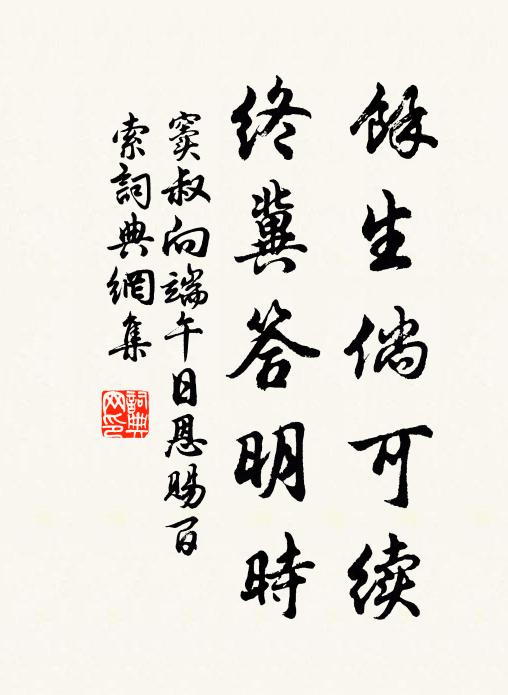 餘生倘可续
终冀答明時
窦叔向端午日恩賜百
索詞典網集
詞典
网印